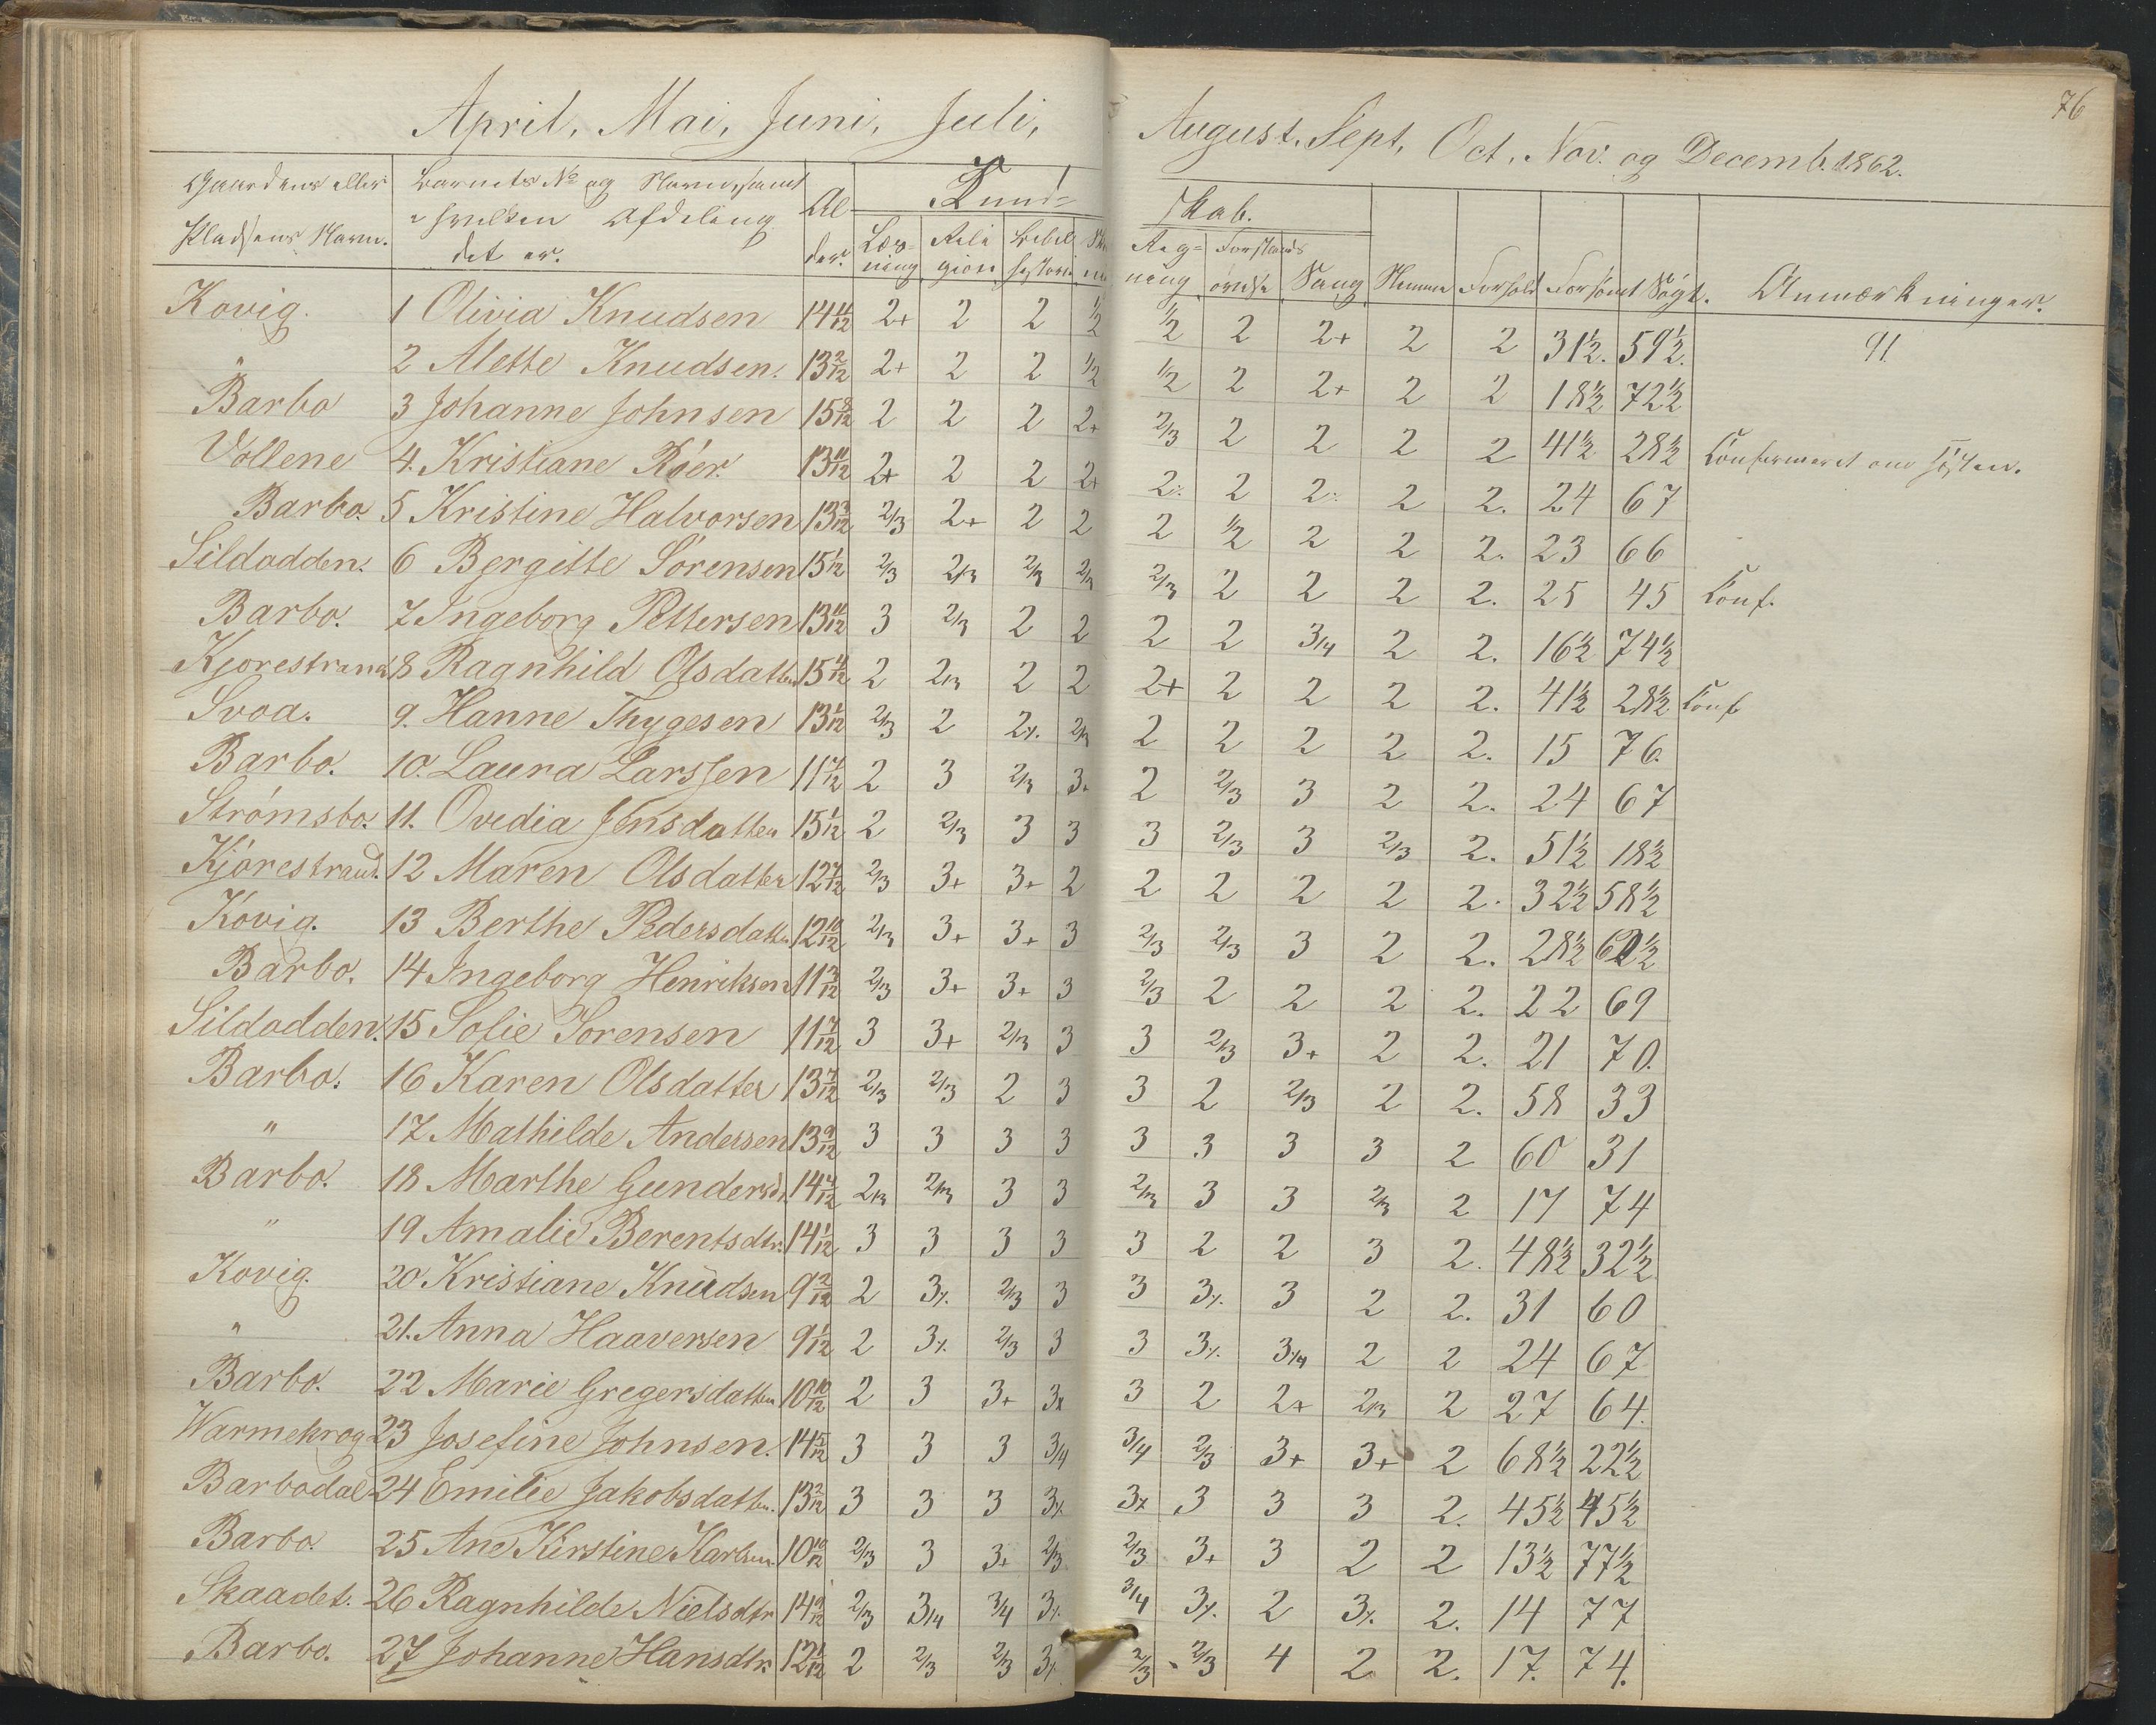 76
April, Mai, Juni, Juli, August. Sept, Oct, Nov. og Decemb. 1862.
Gaardens eller Pladsens Navn. | Barnets No og Navn, samt i hvilken Afdeling det er. | Alder. | Kund-skab. | Anmærkninger.
Læsning | Religion | Bibelhistorie | Regning | Forstandsøvelse | Sang | Nemme | Forhold | Forsømt | Søgt.
Kovig. 1 Olivia Knudsen 14 11/12 2+ 2 2 1/2 1/2 2 2+ 2 2 31½. 59½. 91.
" 2 Alette Knudsen. 13 2/12 2+ 2 2 1/2 1/2 2 2+ 2 2 18½ 72½
Barbo 3 Johanne Johnsen 15 8/12 2 2 2 2+ 2/3 2 2 2 2 41½ 28½ Confirmeret om Høsten.
Vollene 4. Kristiane Röer. 13 11/12 2+ 2 2 2+ 2% 2 2% 2 2. 24 67
Barbo. 5 Kristine Halvorsen 13 3/12 2/3 2+ 2 2 2 1/2 2 2 2. 23 66
Sildodden. 6 Bergitte Sörensen 15 1/12 2/3 2/3 2/3 2/3 2/3 2 2 2 2. 25 45 Conf.
Barbo. 7 Ingeborg Pettersen 13 11/12 3 2/3 2 2 2 2 3/4 2 2. 16½ 74½
Kjorestrand 8 Ragnhild Olsdatter 15 4/12 2 2/3 2 2 2+ 2 2 2 2. 41½ 28½ Conf
Svoa. 9. Hanne Thygesen 13 1/12 2/3 2 2% 2/3 2 2 2 2 2. 15 76.
Barbo. 10. Laura Larssen 11 7/12 2 3 2/3 3+ 2 2/3 3 2 2. 24 67
Strömsbo. 11. Ovidia Jensdatter 15 1/12 2 2/3 3 3 3 2/3 3 2/3 2. 51½ 18½
Kjörestrand. 12 Maren Olsdatter 12 7/12 2/3 3+ 3+ 2 2 2 2 2 2. 32½ 58½
Kovig. 13 Berthe Pedersdatter 12 10/12 2/3 3+ 3+ 3 2/3 2/3 3 2 2. 28½ 62½
Barbo. 14 Ingeborg Henriksen 11 3/12 2/3 3+ 3+ 3 2/3 2 2 2 2. 22 69
Sildodden. 15 Sofie Sorensen 11 7/12 3 3+ 2/3 3 3 2/3 3+ 2 2. 21 70.
Barbo. 16 Karen Olsdatter 13 7/12 2/3 2/3 2 3 3 2 2/3 2 2. 58 33
" 17 Mathilde Andersen 13 9/12 3 3 3 3 3 3 3 3 2 60 31
Barbo. 18 Marthe Gundersd. 14 7/12 2/3 2/3 3 3 2/3 3 3 2/3 2 17 74
" 19 Amalie Berentsdtr. 14 1/12 3 3 3 3 3 2 2 3 2. 48½ 32½
Kovig. 20 Kristiane Knudsen 9 2/12 2 3% 2/3 3 3 3% 3 2 2. 31 60
" 21. Anna Haaversen 9 1/12 2 3% 2/3 3 3 3% 3/4 2 2 24 67
Barbo. 22 Marie Gregersdatter 10 10/12 2 3 3+ 3% 3 2 2+ 2/3 2 27 64.
Warmekrog 23 Josefine Johnsen. 14 5/12 3 3 3 3/4 3/4 2/3 3+ 3+ 2 68½ 22½
Barbodal 24 Emilie Jakobsdatter. 13 2/12 3 3 3 3% 3% 3 3 3 2. 45½ 45½
Barbo. 25 Ane Kirstine Karlsen 10 10/12 2/3 3 3+ 2/3 2/3 3+ 3 2 2 13½ 77½
Skaadet. 26 Ragnhilde Nielsdtr 14 9/12 2/3 3/4 3/4 3% 3/4 3% 2 3% 2. 14 77
Barbo. 27 Johanne Hansdtr 12 1/12 2 2/3 2/3 3% 2/3 2/3 4 2 2. 17. 74.